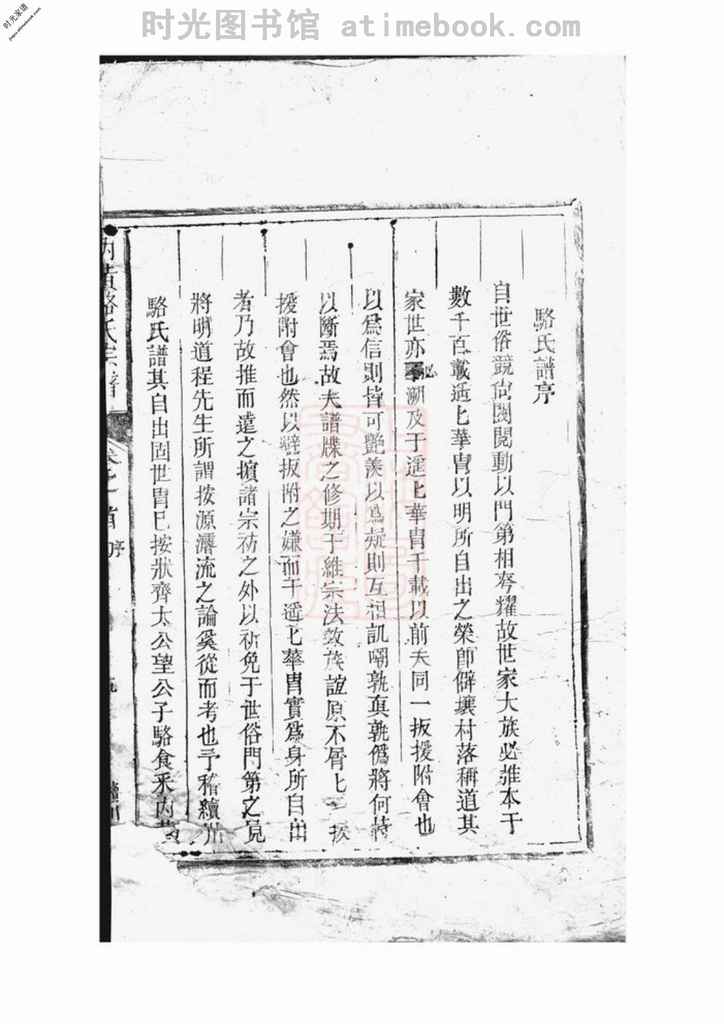 时光图书馆 atimebook.com
时光家谱
駱氏譜序
自世俗競尙閥閱動以門第相夸耀故世家大族必推本于
數千百載遥遥華胄以明所自出之榮卽僻壤村落稱道其
家世亦必溯及于遥遥華胄千載以前夫同一扳援附會也
以爲信則皆可艷羨以爲疑則互相訊嘲孰眞孰僞將何恃
以斷焉故夫譜牒之修期于維宗法敦族誼原不屑扳
援附會也然以避扳附之嫌而于遥遥華胄實爲身所自出
者乃故推而遠之擯諸宗祊之外以祈免于世俗門第之見
將明道程先生所謂按源溯流之論奚從而考也予稽續
駱氏譜其自出固世胄已按狀齊太公望公子駱食采内黄
内黄駱氏宗譜 卷之首 序